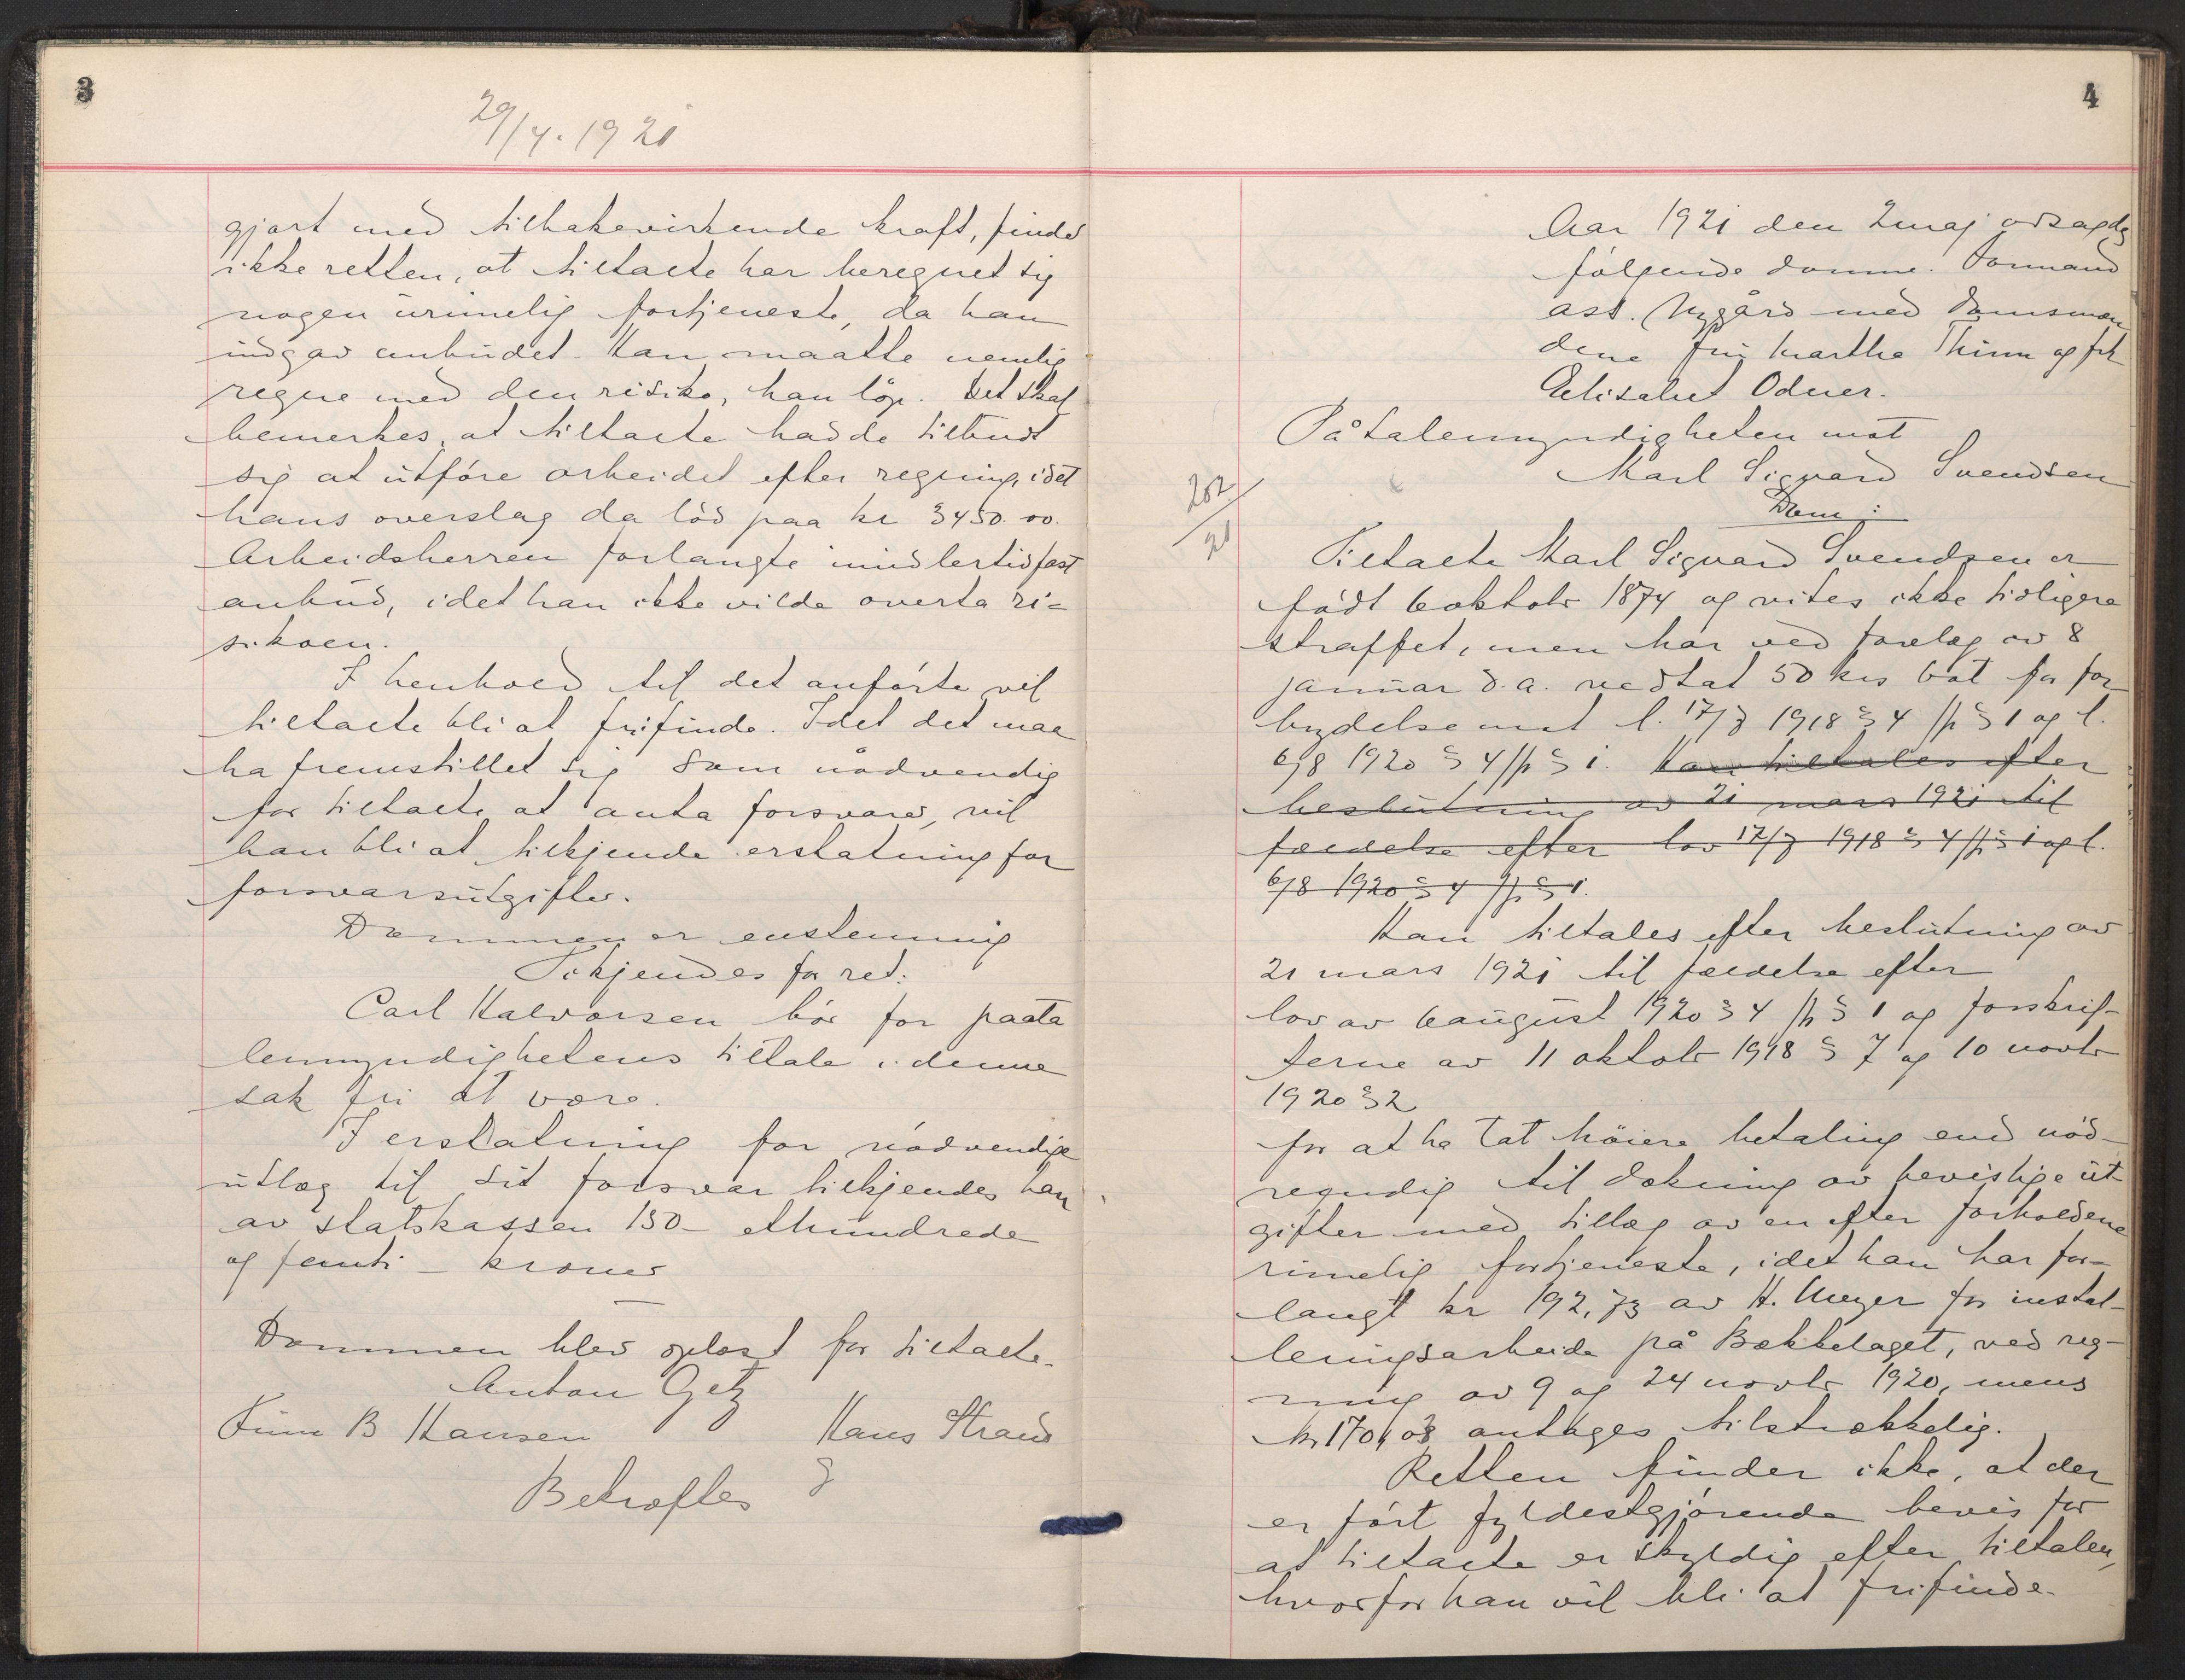 3
29/4. 1921
gjort med tilbakevirkende kraft, finder
ikke retten, at tiltalte har beregnet sig
nogen urimelig fortjeneste, da han
indgav anbudet. Han maatte nemlig
regne med den risiko, han löp. Det skal
bemerkes, at tiltalte hadde tilbudt
sig at utföre arbeidet efter regning, idet
hans overslag da löd paa kr 3450.00.
Arbeidsherren forlangte imidlertid fast
anbud, idet han ikke vilde overta ri-
sikoen.
I henhold til det anförte vil
tiltalte bli at frifinde. Idet det maa
ha fremstillet sig som nödvendig
for tiltalte at anta forsvarer, vil
han bli at tilkjende erstatning for
forsvarsutgifter.
Dommen er enstemmig
Ti kjendes for ret:
Carl Halvorsen bör for paata
lemyndighetens tiltale i denne
sak fri at være.
I erstatning for nödvendige
utlæg til sit forsvar tilkjendes han
av statskassen 150 - ethundrede
og femti - kroner
Dommen blev oplæst for tiltalte.
Anton Getz
Finn B Hansen Hans Strand
Bekræftes
4
Aar 1921 den 2 maj avsagdes
følgende domme. Formand
ass. Nygård med Domsmæn
dene fru Martha Thinn og frk
Elisabet Odner.
Påtalemyndigheten mot
Karl Sigvard Svendsen
202/21
Dom:
Tiltalte Karl Sigvard Svendsen er
födt 6 oktobr 1874 og vites ikke tidligere
straffet, men har ved forelæg av 8
januar d.a. vedtat 50 krs bot for for
brydelse mot l. 17/7 1918 § 4 jfr § 1 og l.
6/8 1920 § 4 jfr § 1. Han tiltales efter
beslutning av 21 mars 1921 til
fældelse efter lov 17/7 1918 § 4 jfr § 1 og l.
6/8 1920 § 4 jfr § 1.
Han tiltales efter beslutning av
21 mars 1921 til fældelse efter
lov av 6 august 1920 § 4 jfr § 1 og forskrif-
terne av 11 oktobr 1918 § 7 og 10 novbr
1920 § 2
for at ha tat höiere betaling end nöd-
vendig til dækning av bevislige ut-
gifter med tillæg av en efter forholdene
rimelig fortjeneste, idet han har for-
langt kr 192,73 av H. Meyer for instal-
leringsarbeide på Bækkelaget, ved reg-
ning av 9 og 24 novbr 1920, mens
kr 170,03 antages tilstrækkelig.
Retten finder ikke, at der
er fört fyldestgjörende bevis for
at tiltalte er skyldig efter tiltalen,
hvorfor han vil bli at frifinde.